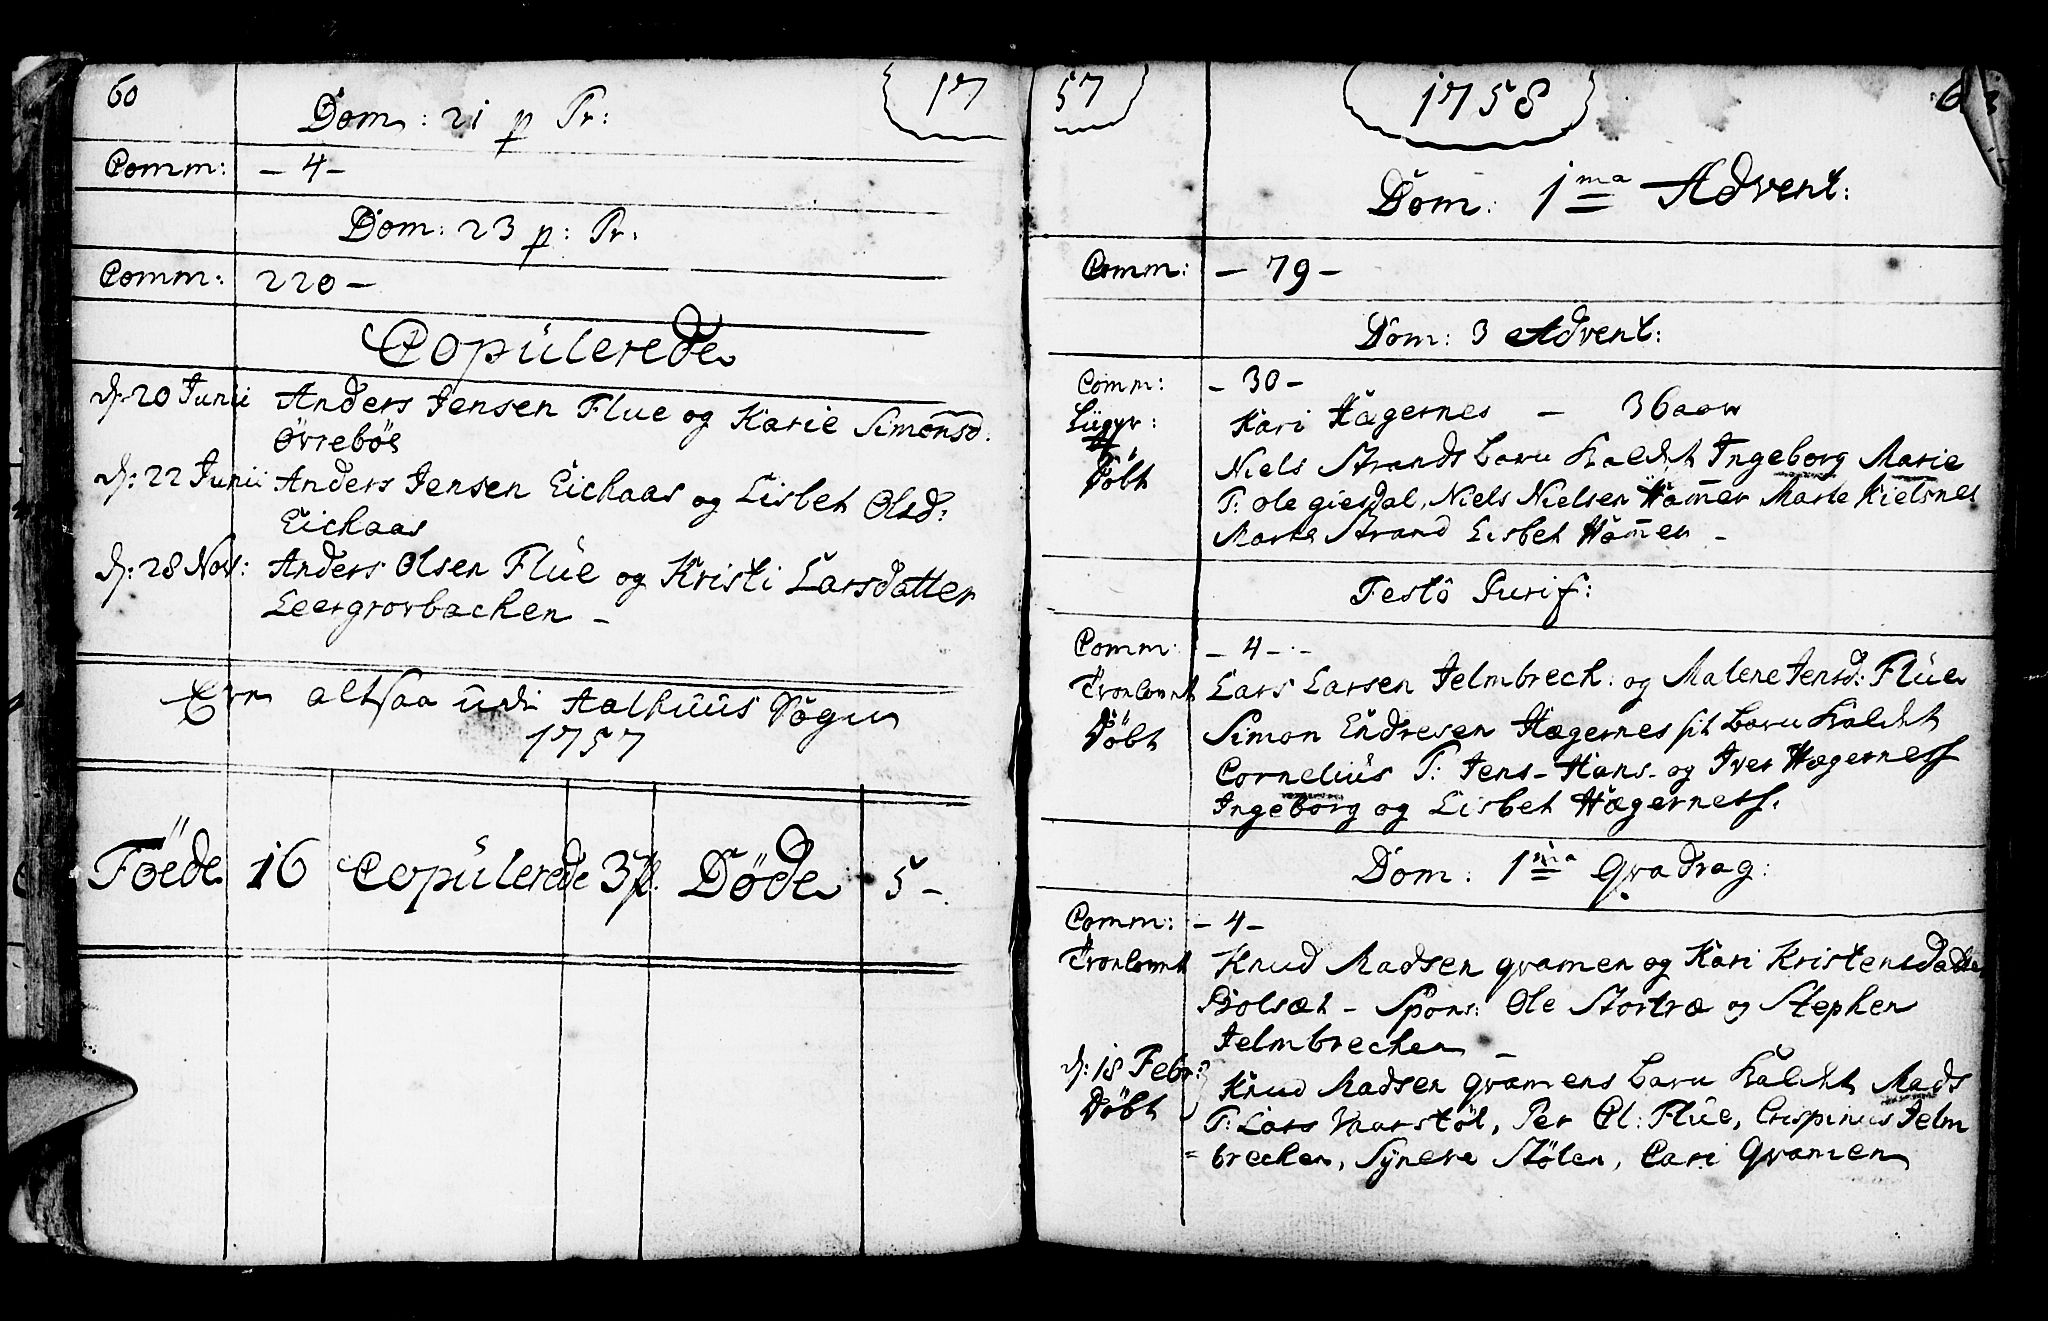 60
17
Dom: 21 p Tr:
Comm: - 4 -
Dom: 23 p: Tr:
Comm: 220 -
Copúlerede
d. 20 Junii Anders Jensen Flue og Karie Simonsd:
Övreböe
d: 22 Junii Anders Jensen Eichaas og Lisbet Olsd:
Eichaas
d: 28 Nov: Anders Olsen Flúe og Kristi Larsdatter
Leergrovbachen -
Er altsaa udi Aalhúús Sogn
1757
Föede 16 Copúlerede 3 p. Döde 5 -
57
1758
6
Dom: 1ma Advent:
Comm: - 79 -
Dom: 3 Advent:
Comm: - 30 -
Kari Hægernes - 36 aar
Döbt Niels Strands barn kaldet Ingeborg Marie
T: Ole giesdal, Niels Nielsen Ham̄er Marte Kielsnes
Marte Strand Lisbet Ham̄er -
Festô Purif:
Comm: - 4 -
Trolovet Lars Larsen Jelmbrech: og Malene Jensd: Flúe
Döbt Simon Endresen Hægernes sit barn kaldet
Cornelius T: Jens - Hans - og Iver Hægerness
Ingeborg og Lisbet Hægerness.
Dom: 1ma Qvadrag:
Comm: - 4 -
Trolovet Knud Madsen qvamen og Kari Kristensdatter
Biolsæt - Spons: Ole Stortræ og Stephen
Jelmbrechen -
d: 18 Febr: Knud Madsen qvamens barn kaldet Mads
Döbt T: Lars Maarstöl, Per Cl: Flúe, Crispinus Jelm
= brechen, Syneve Stölen, Cari Qvamen